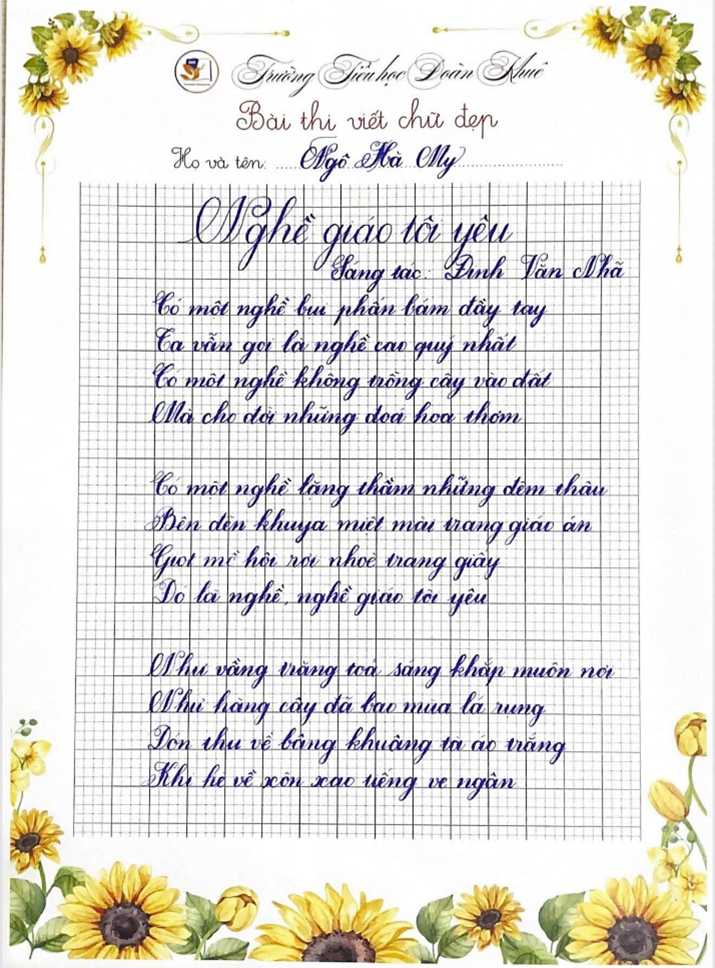 Trường Tiểu học Đoàn Khuê
Bài thi viết chữ đẹp
Họ và tên: Ngô Hà My
Nghề giáo tôi yêu
Sáng tác: Đinh Văn Nhã
Có một nghề bụi phấn bám đầy tay
Ta vẫn gọi là nghề cao quý nhất
Có một nghề không trồng cây vào đất
Mà cho đời những đoá hoa thơm
Có một nghề lặng thầm những đêm thâu
Bên đèn khuya miệt mài trang giáo án
Giọt mồ hôi rơi nhoè trang giấy
Đó là nghề, nghề giáo tôi yêu
Như vầng trăng toả sáng khắp muôn nơi
Như hàng cây đã bao mùa lá rụng
Đón thu về bâng khuâng tà áo trắng
Khi hè về xôn xao tiếng ve ngân